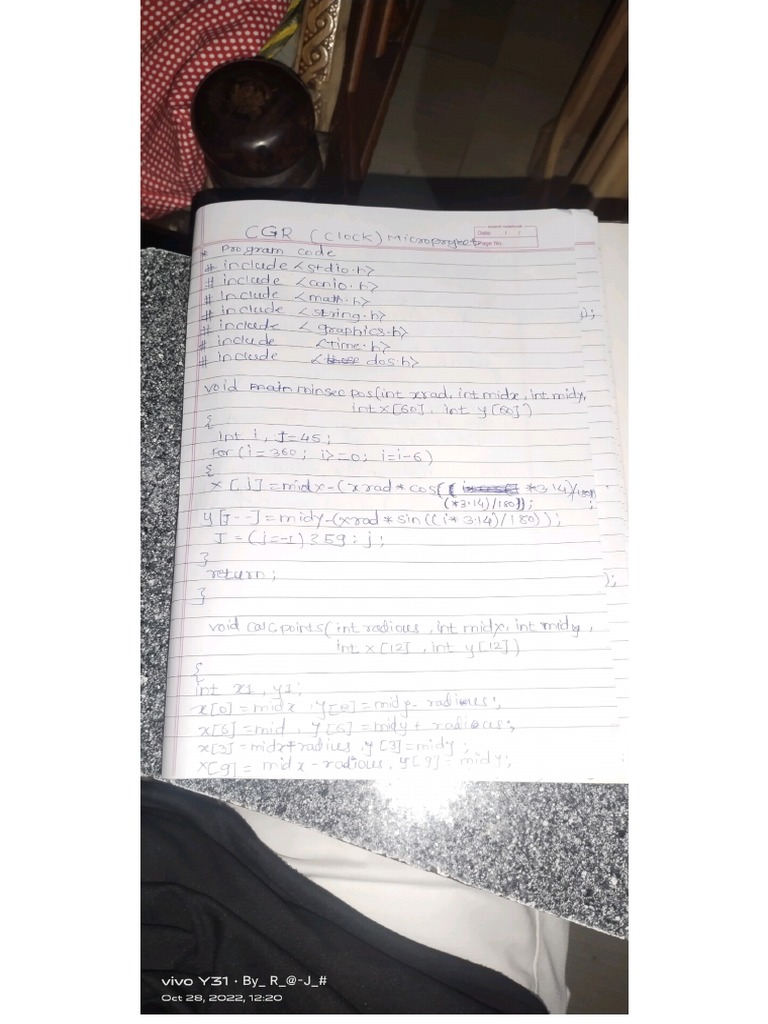 CGR (Clock) Microproject
Date: / /
Page No.
* Program code
# include <stdio.h>
# include <conio.h>
# Include <math.h>
# include <string.h>
# include <graphics.h>
# include <time.h>
# Include <dos.h>
void minsecpos(int xrad, int midx, int midy,
int x[60], int y[60])
{
int i, J=45;
for (i=360; i>=0; i=i-6)
{
x[j]=midx-(xrad*cos((*3.14)/180)
(*3.14)/180));
y[J--]=midy-(xrad*sin((i*3.14)/180));
J=(j=-1)?59:j;
}
return;
}
void calcpoints(int radious, int midx, int midy,
int x[12], int y[12])
{
int x1, y1;
x[0]=midx, y[0]=midy-radious;
x[6]=mid, y[6]=midy+radious;
x[3]=midx+radius, y[3]=midy;
x[9]=midx-radious, y[9]=midy;
);
);
vivo Y31 · By_ R_@-J_#
Oct 28, 2022, 12:20